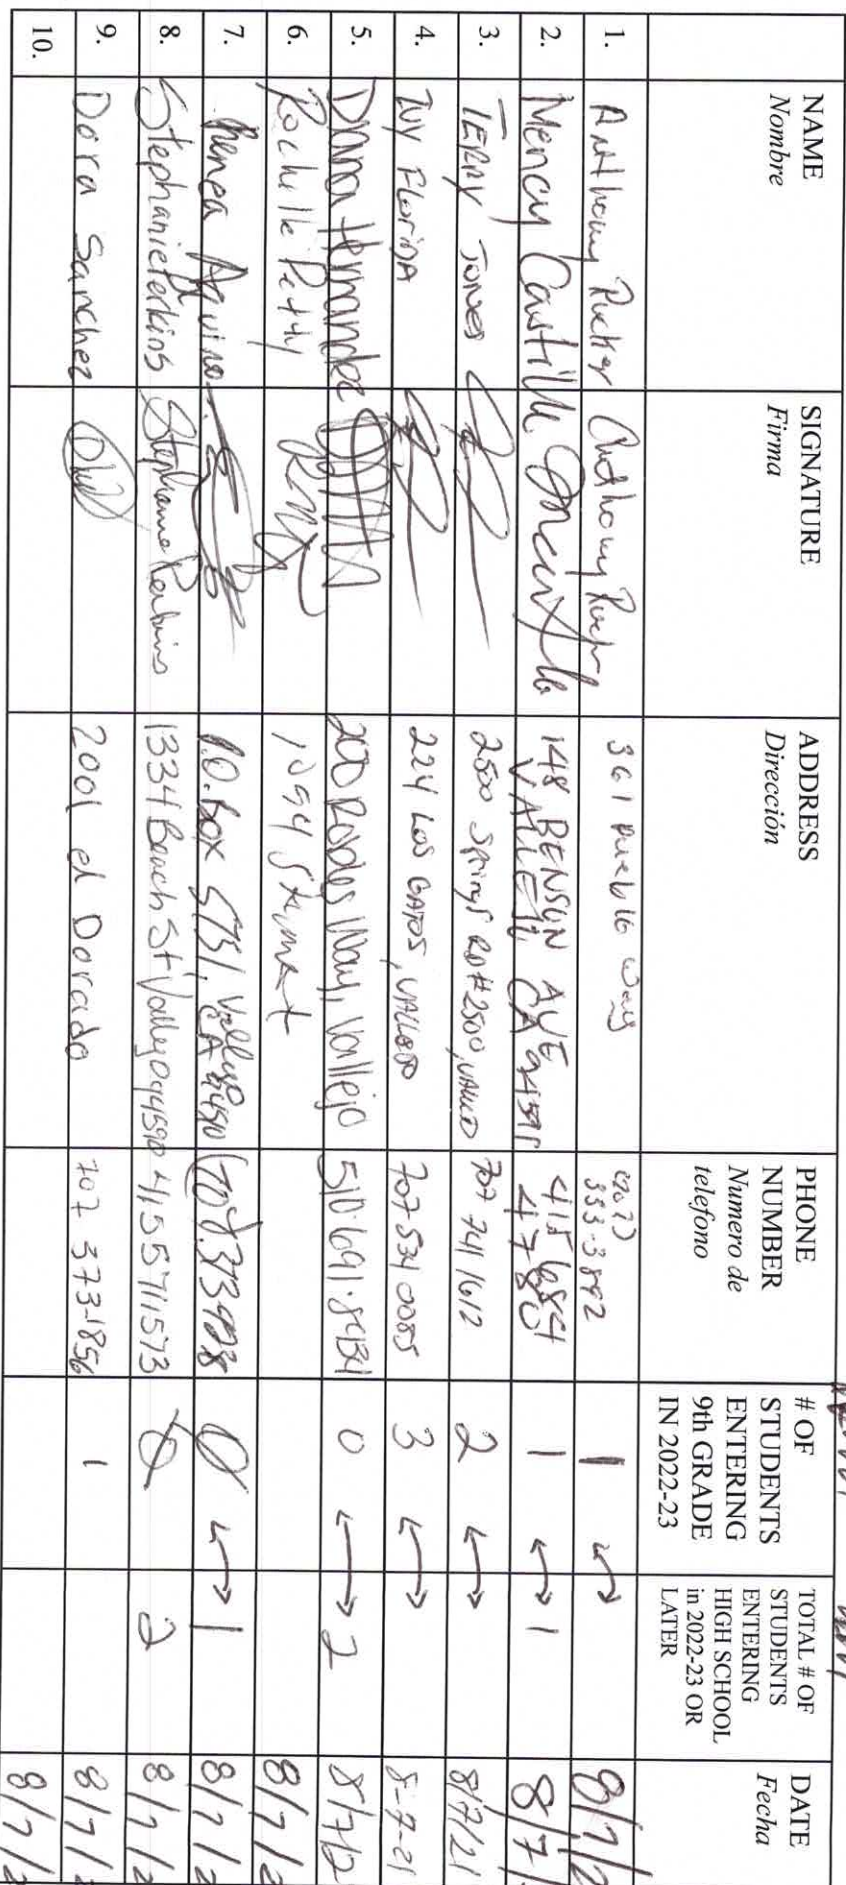 NAME
Nombre
SIGNATURE
Firma
ADDRESS
Dirección
PHONE
NUMBER
Numero de
telefono
# OF
STUDENTS
ENTERING
9th GRADE
IN 2022-23
TOTAL # OF
STUDENTS
ENTERING
HIGH SCHOOL
in 2022-23 OR
LATER
DATE
Fecha
1. Anthony Rucker Anthony 361 Pueblo Way 333-3892 1
2. Mency Castillo 148 BENSON AVE VALLEJO CA 415 684 4780 1 1 8/7/
3. TERRY JONES 2500 Springs RD #2500, 707 741 1612 2 8/7/21
4. IVY FLORIDA 224 LOS GATOS, VALLEJO 707 534 0085 3 8-7-21
5. Diana Hernandez 200 Rodes Way, Vallejo 510.691.8434 0 2 8/7/2
6. Rochelle Petty 8/7/2
7. Renea Aquino P.O. box 5731, Vallejo CA 0 1 8/7/2
8. Stephanie Perkins Stephanie Perkins 1334 Beach St 94590 415 571 1573 0 2 8/7/2
9. Dora Sanchez 2001 el Dorado 707 373-1856 1 8/7/2
10. 8/7/2